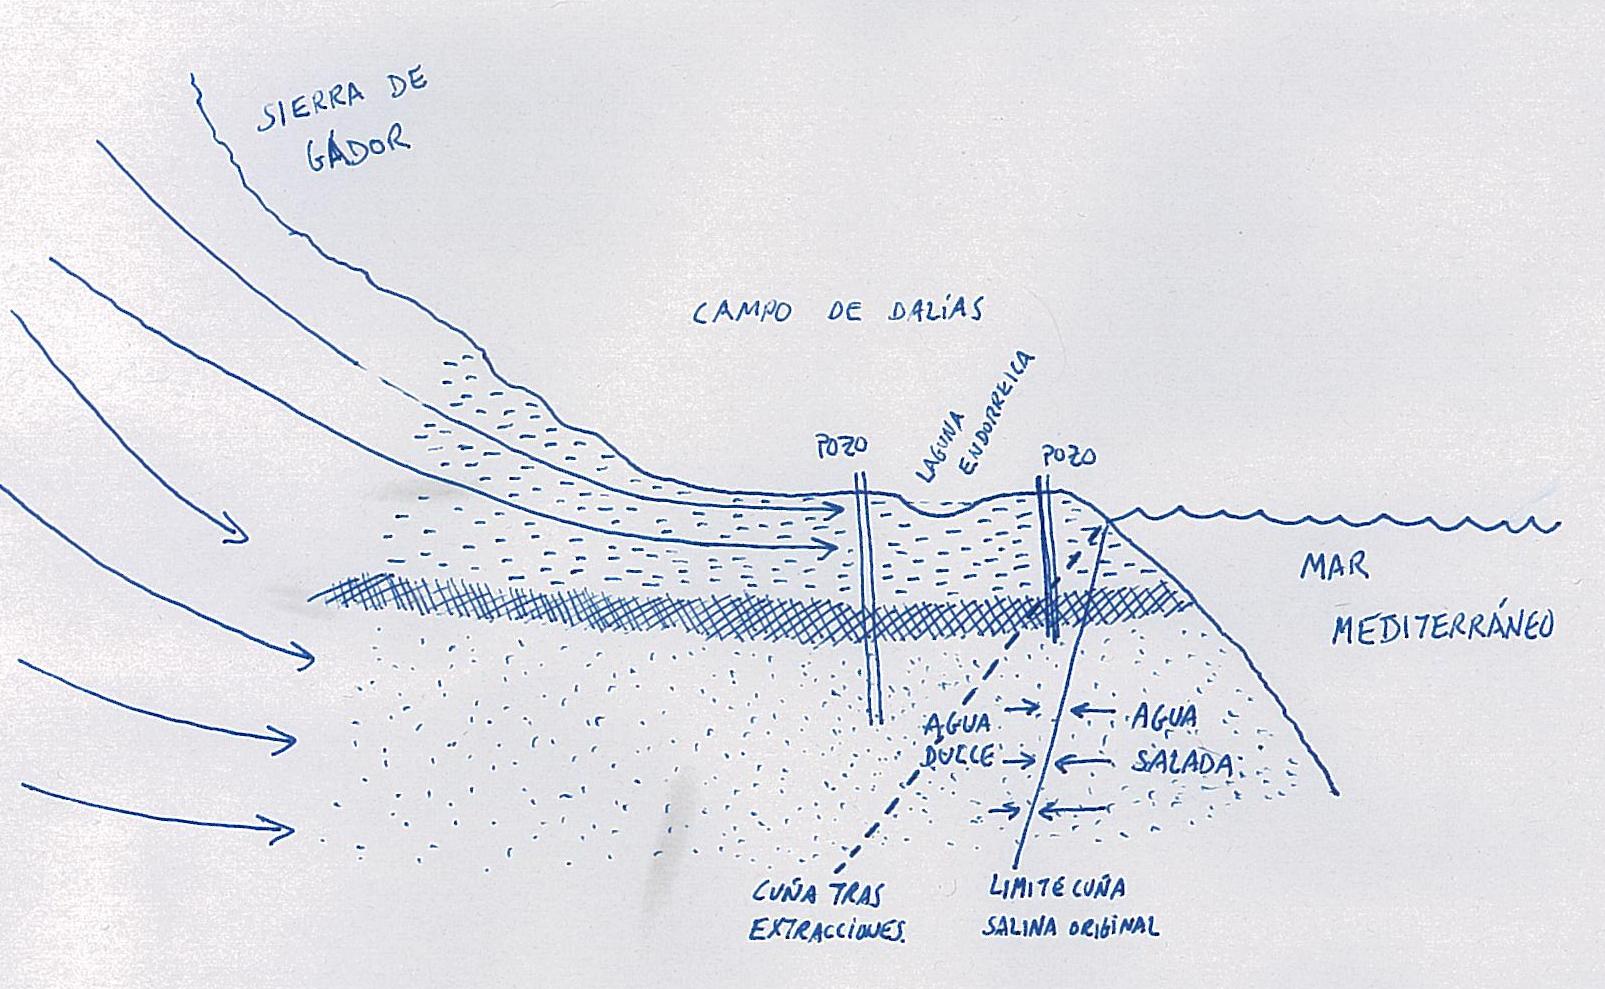 SIERRA DE
GÁDOR
CAMPO DE DALÍAS
POZO
LAGUNA
ENDORREICA
POZO
MAR
MEDITERRÁNEO
AGUA
DULCE
AGUA
SALADA
CUÑA TRAS
EXTRACCIONES.
LIMITE CUÑA
SALINA ORIGINAL